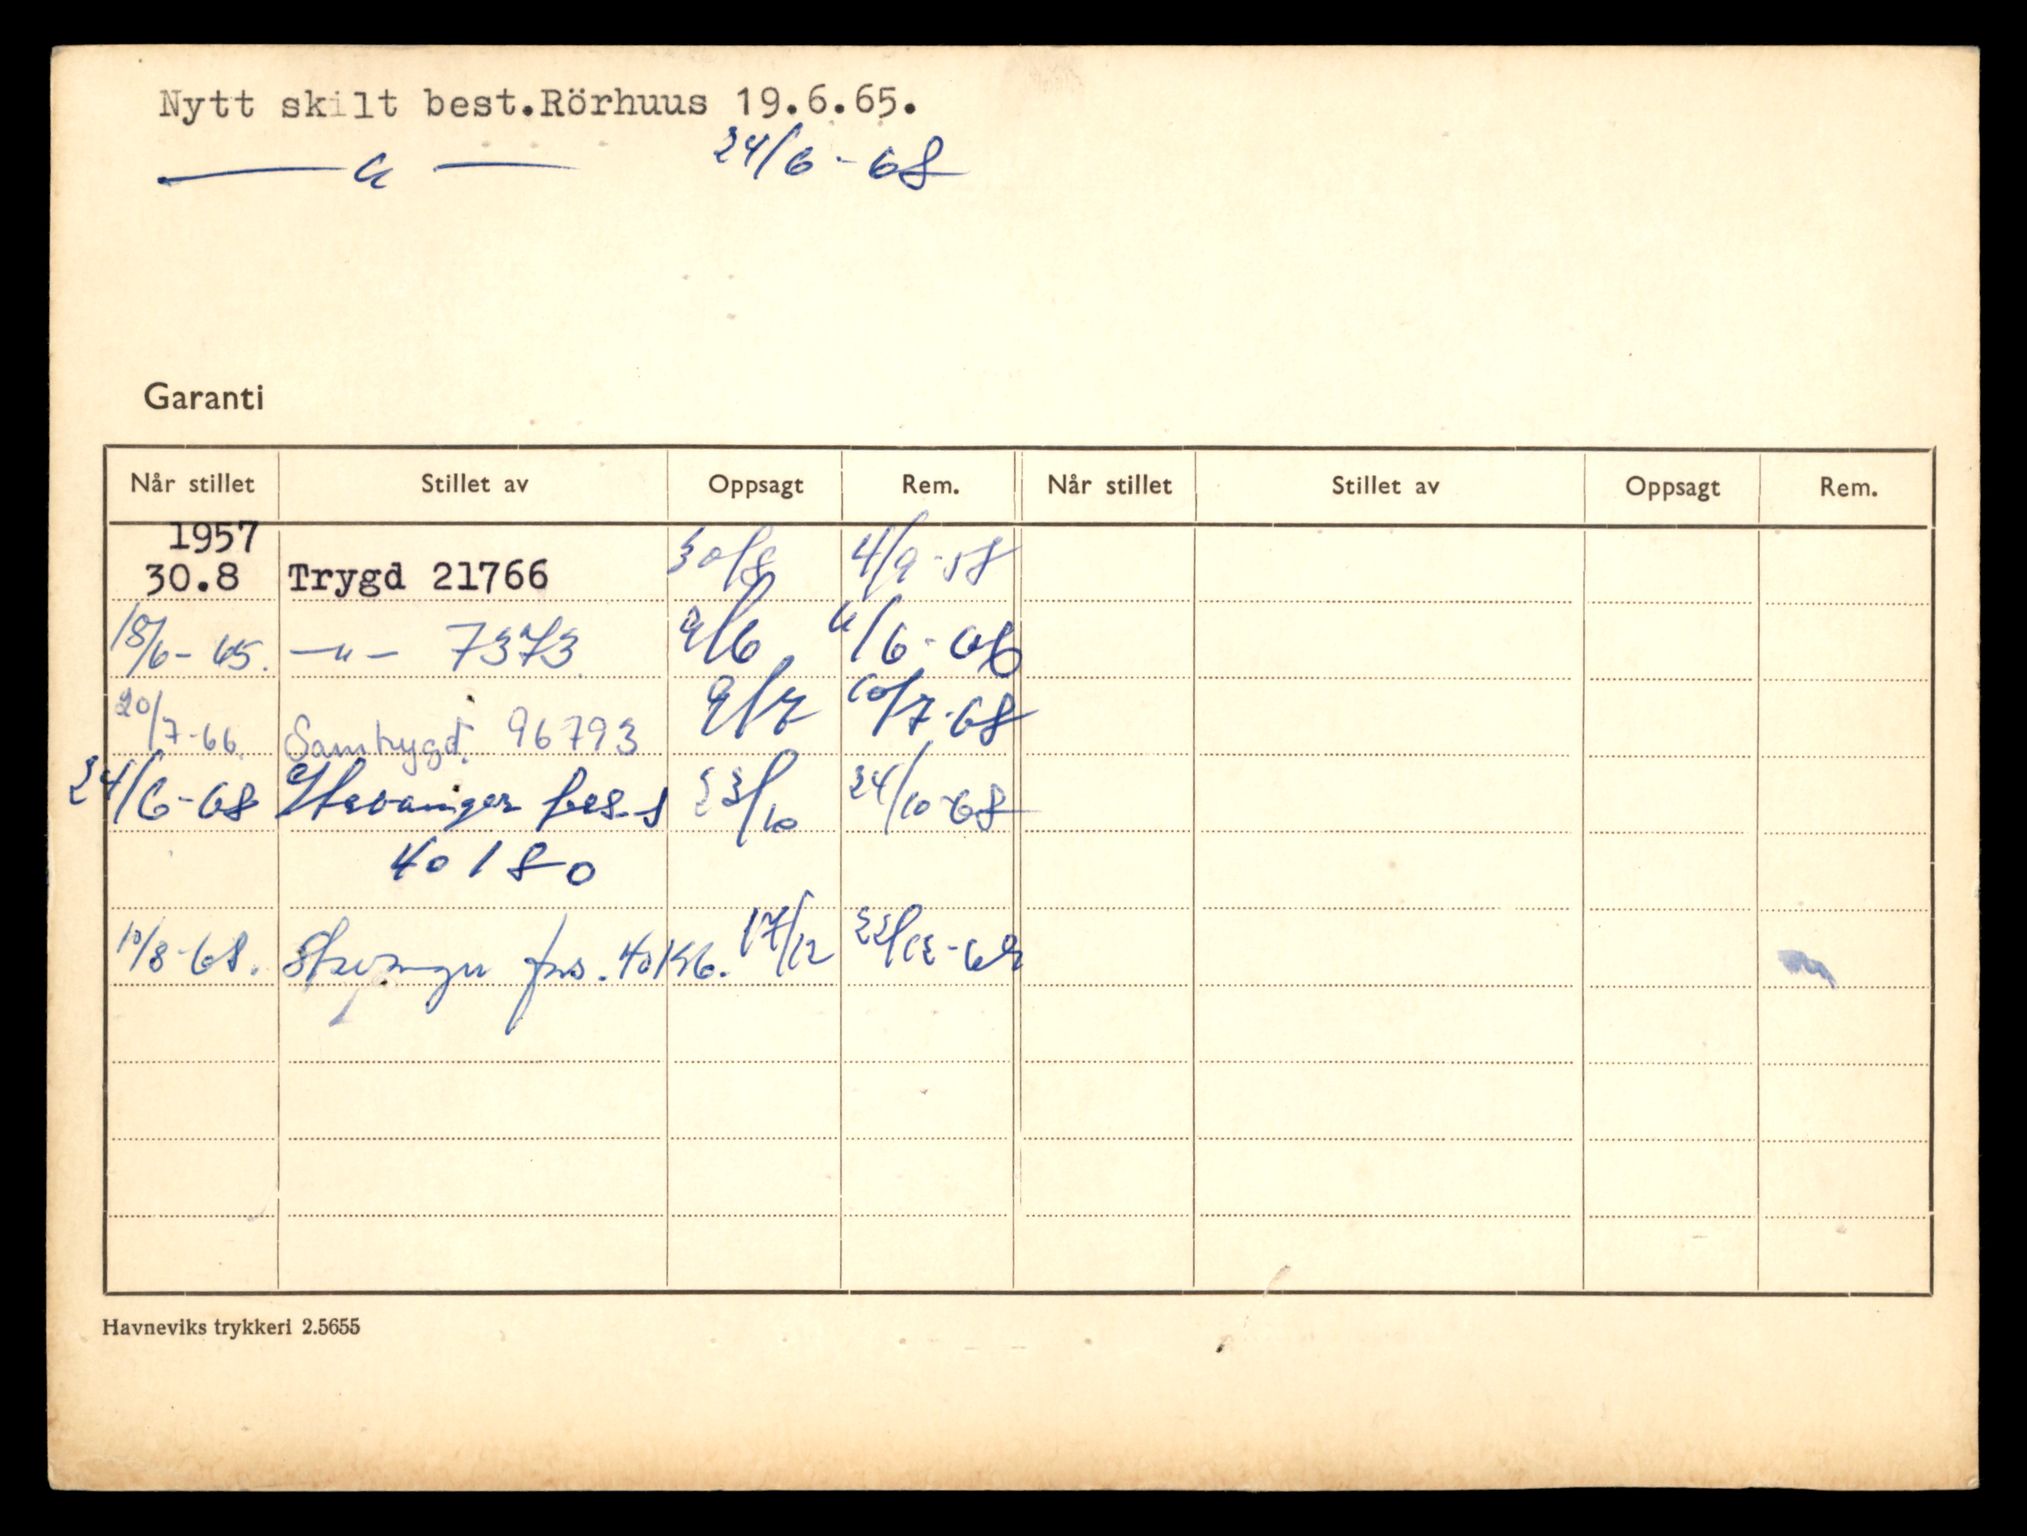 Nytt skilt best.Rörhuus 19.6.65.
— " — 24/6-68
Garanti
Når stillet Stillet av Oppsagt Rem. Når stillet Stillet av Oppsagt Rem.
1957
30.8 Trygd 21766 30/8 4/9-58
18/6-65. -"- 7373 9/6 11/6-66
20/7-66. Samtrygd. 96793 9/7 10/7-68
24/6-68 Stavanger fors. 23/10 24/10-68
40180
10/8-68. Stavanger fors. 17/12
Havneviks trykkeri 2.5655